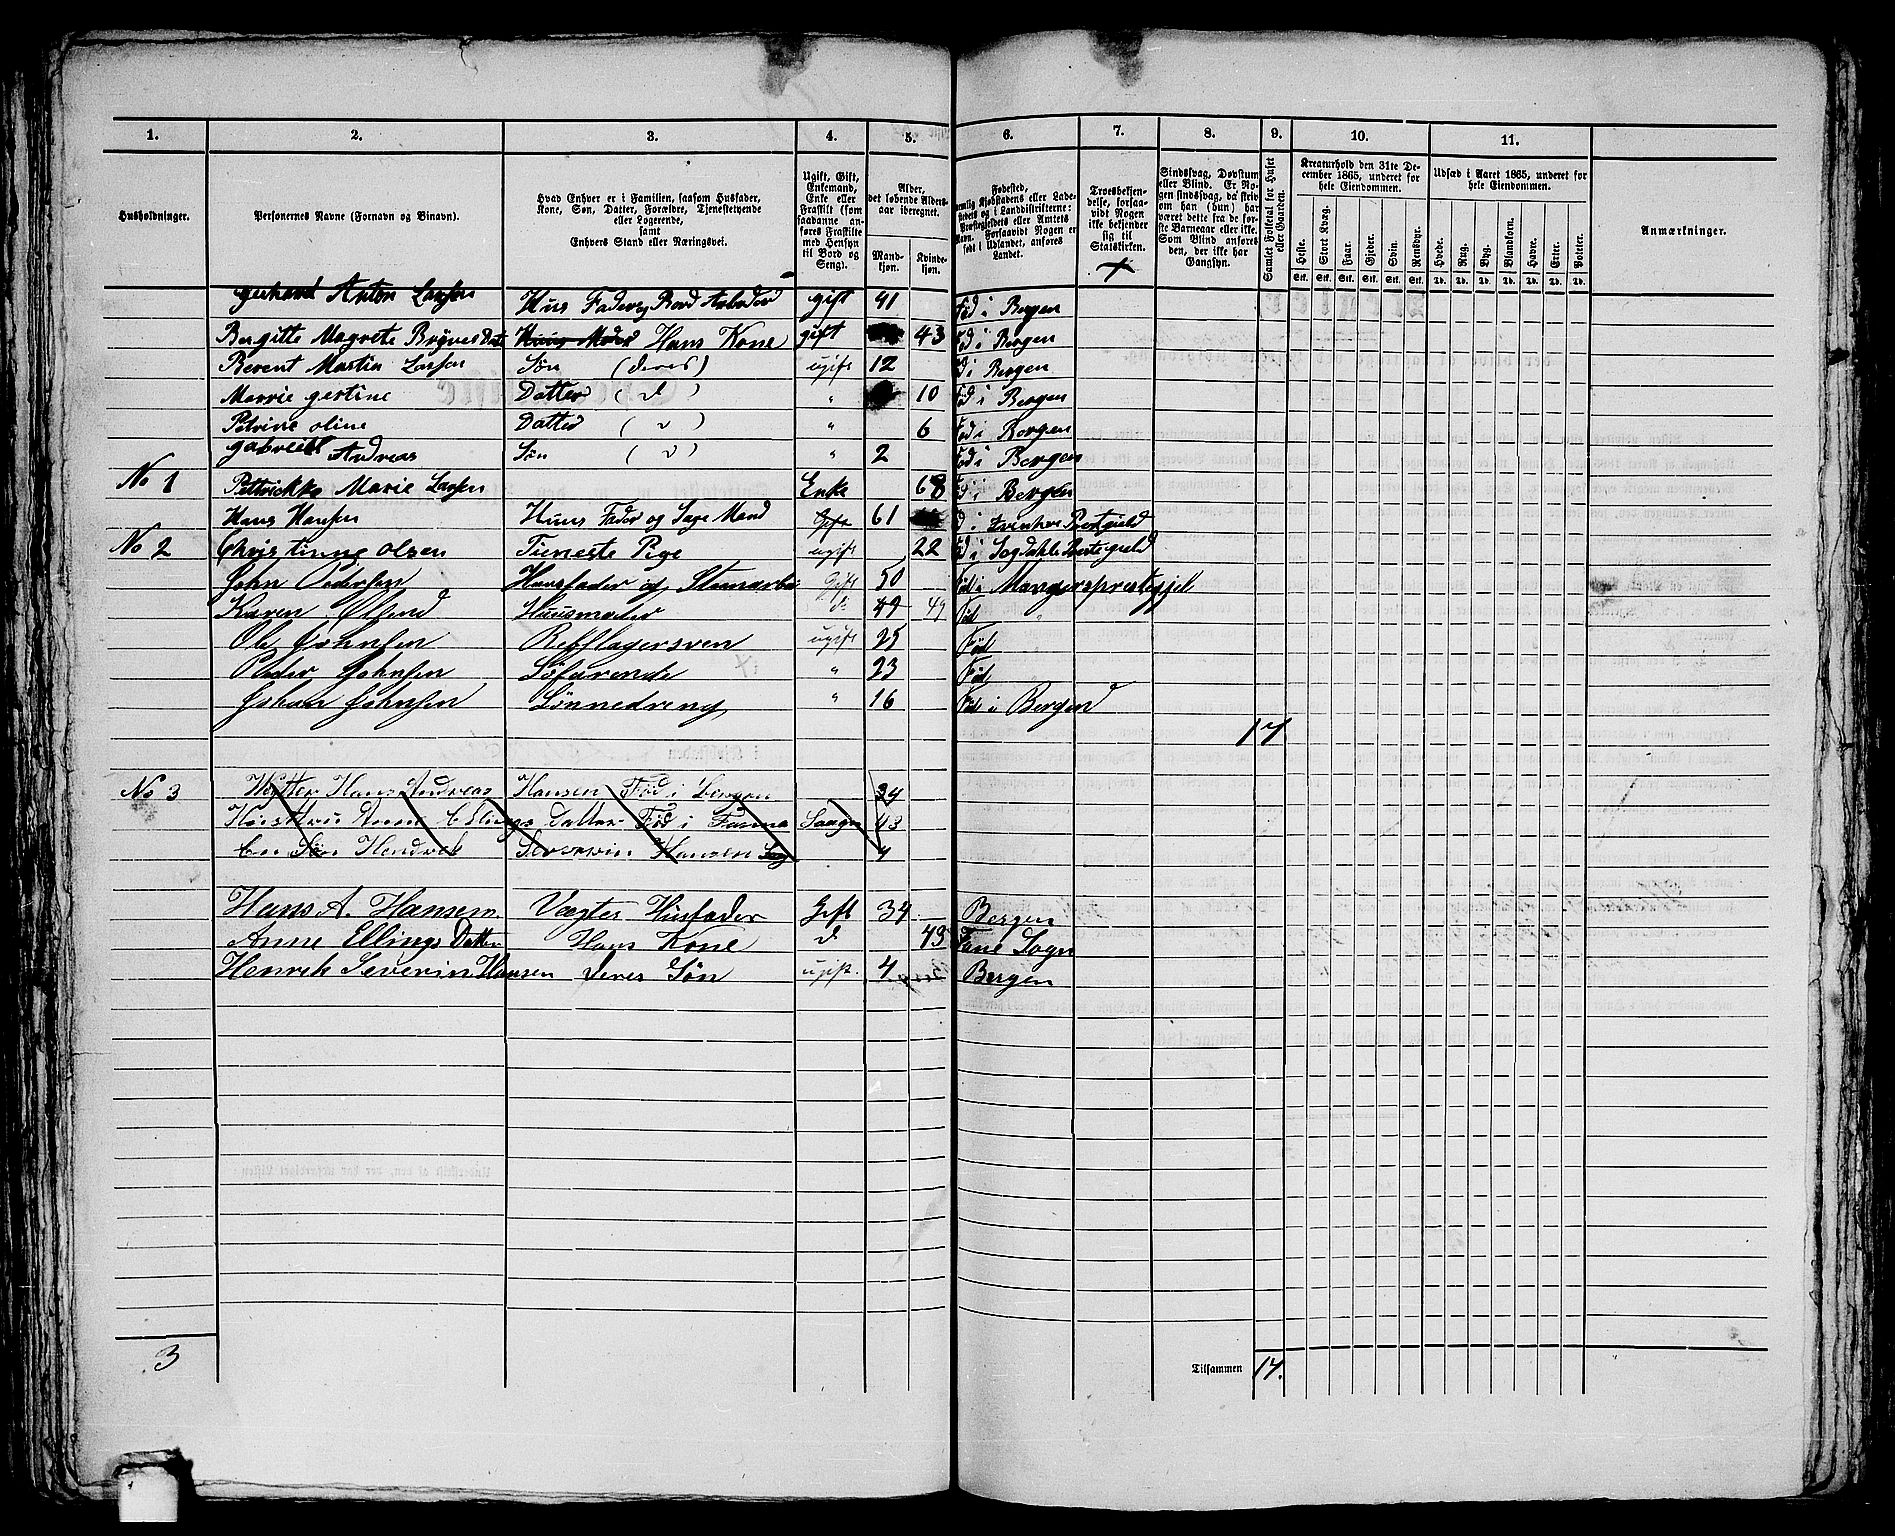 1. 2. 3. 4. 5. 6. 7. 8. 9. 10. 11.
Husholdninger.
Personernes Navne (Fornavn og Binavn).
Hvad Enhver er i Familien, saasom Husfader,
Kone, Søn, Datter, Forældre, Tjenestetyende
eller Logerende,
samt
Enhvers Stand eller Næringsvei.
Ugift, Gift,
Enkemand,
Enke eller
Fraskilt (som
saadanne an-
føres Fraskilte
med Hensyn
til Bord og
Seng).
Alder,
det løbende Alders-
aar iberegnet.
Mand-
kjøn.
Kvinde-
kjøn.
Fødested,
nemlig Kjøbstadens eller Lade-
stedets og i Landdistrikterne:
Præstegjeldets eller Amtets
Navn. Forsaavidt Nogen er
født i Udlandet, anføres
Landet.
Troesbekjen-
delse, forsaa-
vidt Nogen
ikke bekjender
sig til
Statskirken.
Sindssvag, Døvstum
eller Blind. Er No-
gen sindssvag, da skriv
om han (hun) har
været dette fra de før-
ste Barneaar eller ikke.
Som Blind anføres
den, der ikke har
Gangsyn.
Samlet Folketal for Huset
eller Gaarden.
Kreaturhold den 31te De-
cember 1865, underet for
hele Eiendommen.
Heste. Stort Kvæg. Faar. Gjeder. Svin. Rensdyr.
Stk. Stk. Stk. Stk. Stk. Stk.
Udsæd i Aaret 1865, underet for
hele Eiendommen.
Hvede. Rug. Byg. Blandkorn. Havre. Erter. Poteter.
Td. Td. Td. Td. Td. Td. Td.
Anmærkninger.
Gerhard Anton Larsen Hus Fader og Bord Arbeider gift 41 Fød i Bergen
Bergitte Magrete Huus Moder Hans Kone gift 43 Fød i Bergen
Berent Martin Larsen Søn (deres) ugift 12 Fød i Bergen
Marrie gertine Datter ( d ) " 10 Fød i Bergen
Petrine oline Datter ( d ) " 6 Fød i Bergen
gabreiel Andreas Søn ( d ) " 2 Fød i Bergen
No 1 Pettrickke Marie Larsen Enke 68 Fød i Bergen
Hans Hansen Huus Fader og Sage Mand Gift 61
No 2 Christinne Olsen Tieneste Pige ugift 22 Fød i Sogdahls Prestegield
John Pedersen Huusfader og Gift 50 Fød i Mangersprestegjel
Karen Huusmoder d 49 49 Fød "
Ole Johnsen Rebslagersven ugift 25 Fød
Peder Johnsen Søfarende " 23 Fød
Johan Johnsen " 16 Fød i Bergen
17
No 3 Hans Andreas Hansen Fød i Bergen 34
Datter Fød i 43
Søn Hendrek Severin Hansen 4
Hans A. Hansen Vægter Husfader Gift 34 Bergen
Anne Ellings Datter Hans Kone d. 43 Fane Sogn
Henrik Severin Hansen deres Søn ugift. 4 Bergen
3 Tilsammen 17.